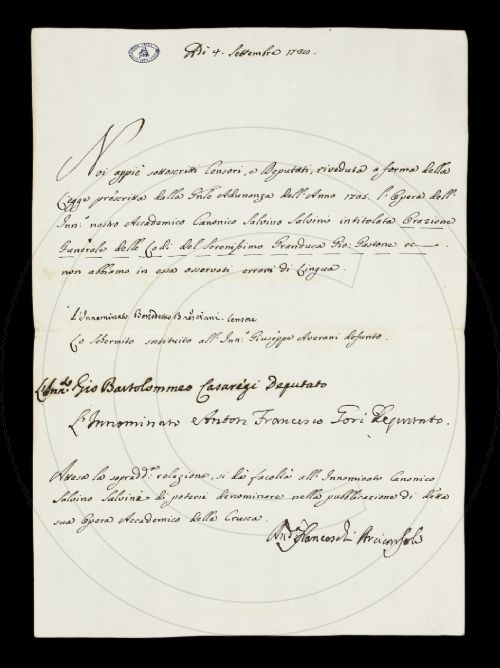 Adì 4. Settembre 1738.
Noi appiè sottoscritti Censori, e Deputati, riveduta a forma della
Legge prescritta dalla Gnle Adunanza dell' Anno 1705. l'Opera dell'
Inn:º nostro Accademico Canonico Salvino Salvini intitolata Orazione
Funerale delle Lodi del Serenissimo Granduca Gio: Gastone ec
non abbiamo in essa osservati errori di Lingua.
L'Innominato Benedetto Bresciani. Censore
Lo Schermito sostituito all' Inn:º Giuseppe Averani defunto.
L'Inn:to Gio Bartolommeo Casaregi Deputato
L'Innominato Anton Francesco Gori Deputato.
Attesa la sopradd:ª relazione, si dà facoltà all' Innominato Canonico
Salvino Salvini di potersi denominare nella pubblicazione di detta
sua Opera Accademico della Crusca.
And:ª Franceschi Arciconsolo